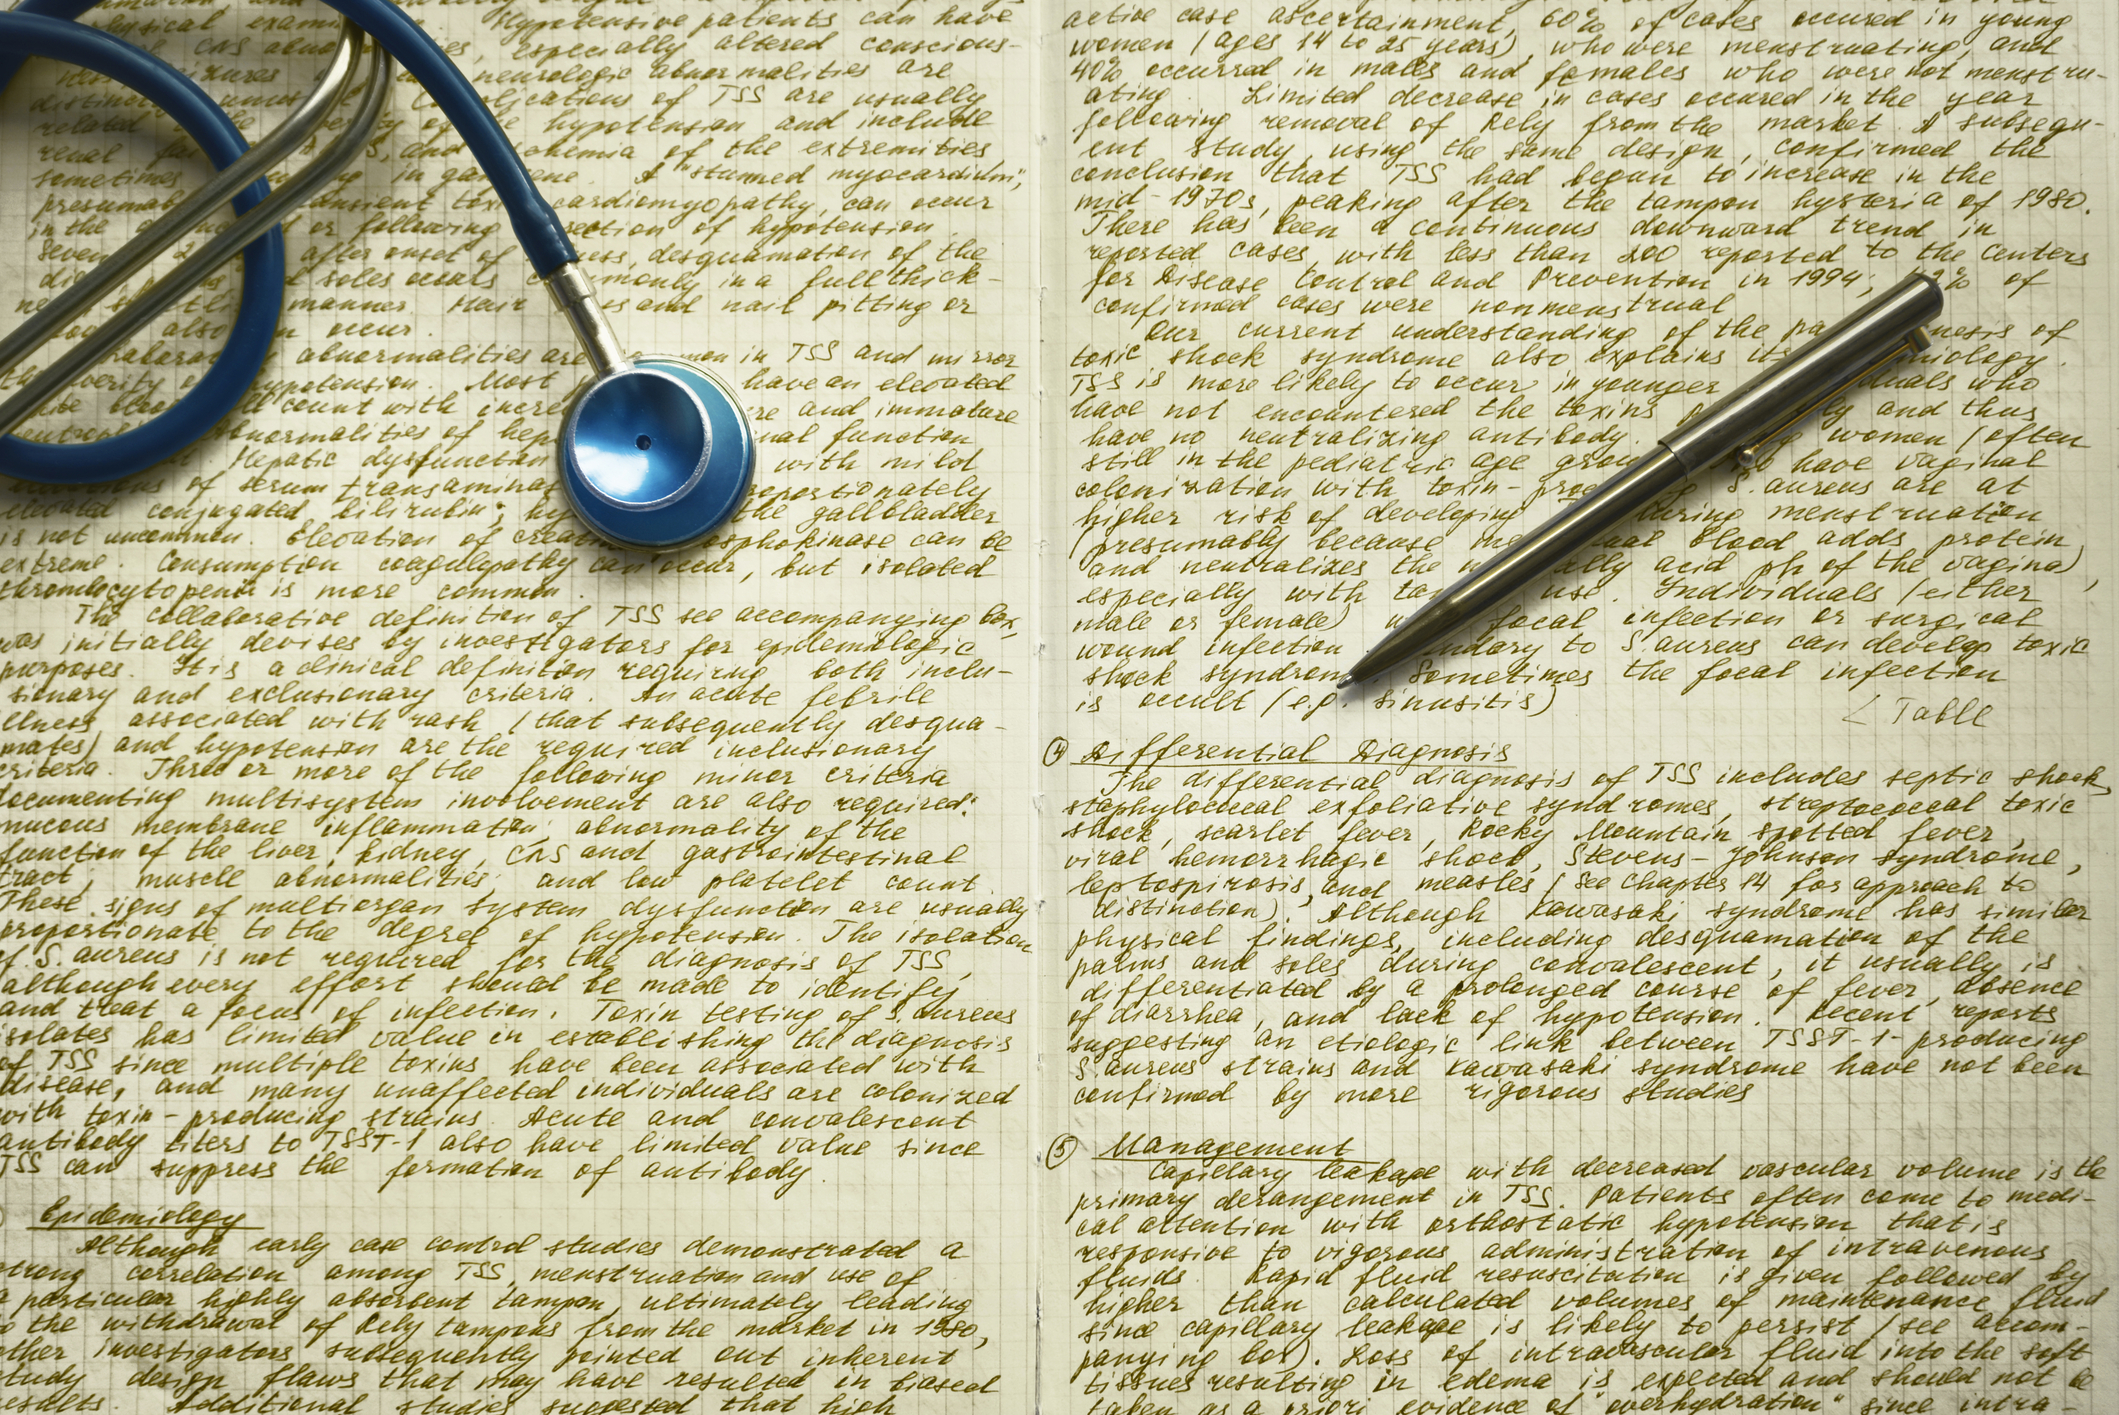 Hypotensive patients can have
especially altered conscious-
neurologic abnormalities are
of TSS are usually
hypotension and include
renal and of the extremities
sometimes in "stunned myocardium",
cardiomyopathy, can occur
in the or following of hypotension.
after onset of desquamation of the
soles occurs in a full thick-
manner. Hair and nail pitting or
also occur.
abnormalities are in TSS and mirror
hypotension. Most have an elevated
count with and immature
abnormalities of function
Hepatic dysfunction with mild
of serum
elevated conjugated bilirubin; the gallbladder
is not uncommon. Elevation of can be
extreme. Consumption coagulopathy can occur, but isolated
thrombocytopenia is more common.
The collaborative definition of TSS see accompanying box,
was initially devises by investigators for epidemiologic
purposes. It is a clinical definition requiring both inclu-
sionary and exclusionary criteria. An acute febrile
illness associated with rash (that subsequently desqua-
mates) and hypotension are the required inclusionary
criteria. Three or more of the following minor criteria
documenting multisystem involvement are also required:
mucous membrane inflammation, abnormality of the
function of the liver, kidney, CNS and gastrointestinal
tract; muscle abnormalities; and low platelet count.
These signs of multiorgan system dysfunction are usually
proportionate to the degree of hypotension. The isolation
of S. aureus is not required for the diagnosis of TSS,
although every effort should be made to identify
and treat a focus of infection. Toxin testing of S. aureus
isolates has limited value in establishing the diagnosis
of TSS since multiple toxins have been associated with
disease, and many unaffected individuals are colonized
with toxin-producing strains. Acute and convalescent
antibody titers to TSST-1 also have limited value since
TSS can suppress the formation of antibody.
Epidemiology
Although early case control studies demonstrated a
strong correlation among TSS, menstruation and use of
a particular highly absorbent tampon, ultimately leading
to the withdrawal of Rely tampons from the market in 1980,
other investigators subsequently pointed out inherent
study design flaws that may have resulted in biased
results. Additional studies suggested that high
active case ascertainment, 60% of cases occured in young
women (ages 14 to 25 years), who were menstruating, and
40% occurred in males and females who were not menstru-
ating. Limited decrease in cases occured in the year
following removal of Rely from the market. A subsequ-
ent study, using the same design, confirmed the
conclusion that TSS had began to increase in the
mid-1970s, peaking after the tampon hysteria of 1980.
There has been a continuous downward trend in
reported cases, with less than 200 reported to the Centers
for Disease Control and Prevention in 1994; % of
confirmed cases were nonmenstrual
Our current understanding of the of
toxic shock syndrome also explains its
TSS is more likely to occur in younger who
have not encountered the toxins and thus
have no neutralizing antibody. women (often
still in the pediatric age have vaginal
colonization with S. aureus are at
higher risk of developing during menstruation
(presumably because blood adds protein
and neutralizes the acid ph of the vagina),
especially with use. Individuals (either
male or female) focal infection or surgical
wound infection to S. aureus can develop toxic
shock Sometimes the focal infection
is occult (e.g. sinusitis)
< Table
④ Differential Diagnosis
The differential diagnosis of TSS includes septic shock,
staphylococcal exfoliative syndromes, streptococcal toxic
shock, scarlet fever, Rocky Mountain spotted fever,
viral hemorrhagic shock, Stevens-Johnson syndrome,
leptospirosis, and measles (see Chapter 14 for approach to
distinction). Although Kawasaki syndrome has similar
physical findings, including desquamation of the
palms and soles during convalescent, it usually is
differentiated by a prolonged course of fever, absence
of diarrhea, and lack of hypotension. Recent reports
suggesting an etiologic link between TSST-1-producing
S. aureus strains and Kawasaki syndrome have not been
confirmed by more rigorous studies
⑤ Management
Capillary leakage with decreased vascular volume is the
primary derangement in TSS. Patients often come to medi-
cal attention with orthostatic hypotension that is
responsive to vigorous administration of intravenous
fluids. Rapid fluid resuscitation is given followed by
higher than calculated volumes of maintenance fluid
since capillary leakage is likely to persist (see accom-
panying box). Loss of intravascular fluid into the soft
tissues resulting in edema is expected and should not be
taken as a priori evidence of "overhydration" since intra-